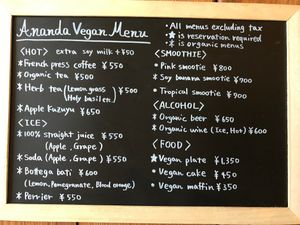 Ananda Vegan Menu
• All menus excluding tax
★ is reservation required
* is organic menus
<HOT> extra soy milk +¥50
* French press coffee ¥550
* Organic tea ¥500
* Herb tea (Lemon grass) ¥500
(Holy basilen)
* Apple Kuzuyu ¥650
<ICE>
* 100% straight juice ¥550
(Apple, Grape)
* Soda (Apple, Grape) ¥550
* Bottega bati ¥600
(Lemon, Pomegranate, Blood orange)
* Perrier ¥550
<SMOOTHIE>
* Pink smootie ¥800
* Soy banana smootie ¥900
* Tropical smootie ¥900
<ALCOHOL>
* Organic beer ¥650
* Organic wine (Ice, Hot) ¥600
<FOOD>
★ Vegan plate ¥1,350
* Vegan cake ¥450
* Vegan maffin ¥350